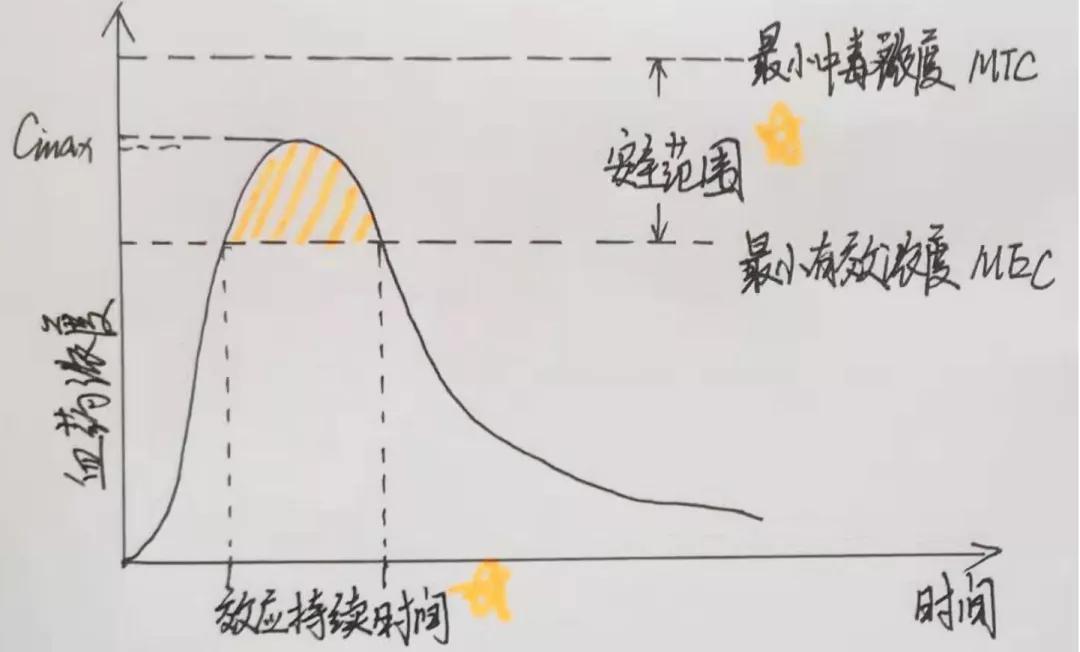 最小中毒浓度 MTC
Cmax
安全范围
最小有效浓度 MEC
血药浓度
效应持续时间
时间